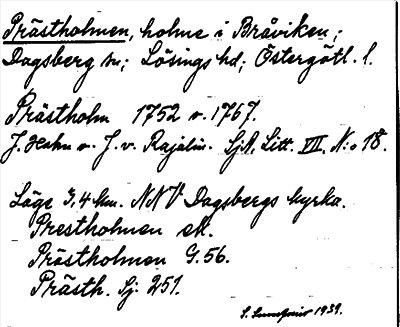 Prästholmen, holme i Bråviken;
Dagsberg sn; Lösings hd; Östergötl. l.
Prästholm 1752 o. 1767.
J. Hahn o. J. v. Rajalin. SjK. Litt. VII. N:o 18.
Läge 3,4 km. NNV Dagsbergs kyrka.
Prestholmen ek.
Prästholmen G. 56.
Prästh. Sj: 251.
1939.